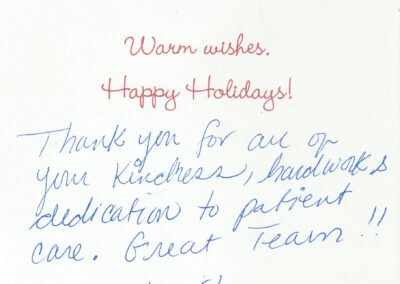 Warm wishes.
Happy Holidays!
Thank you for all of
your kindness, hardwork &
dedication to patient
care. Great Team!!